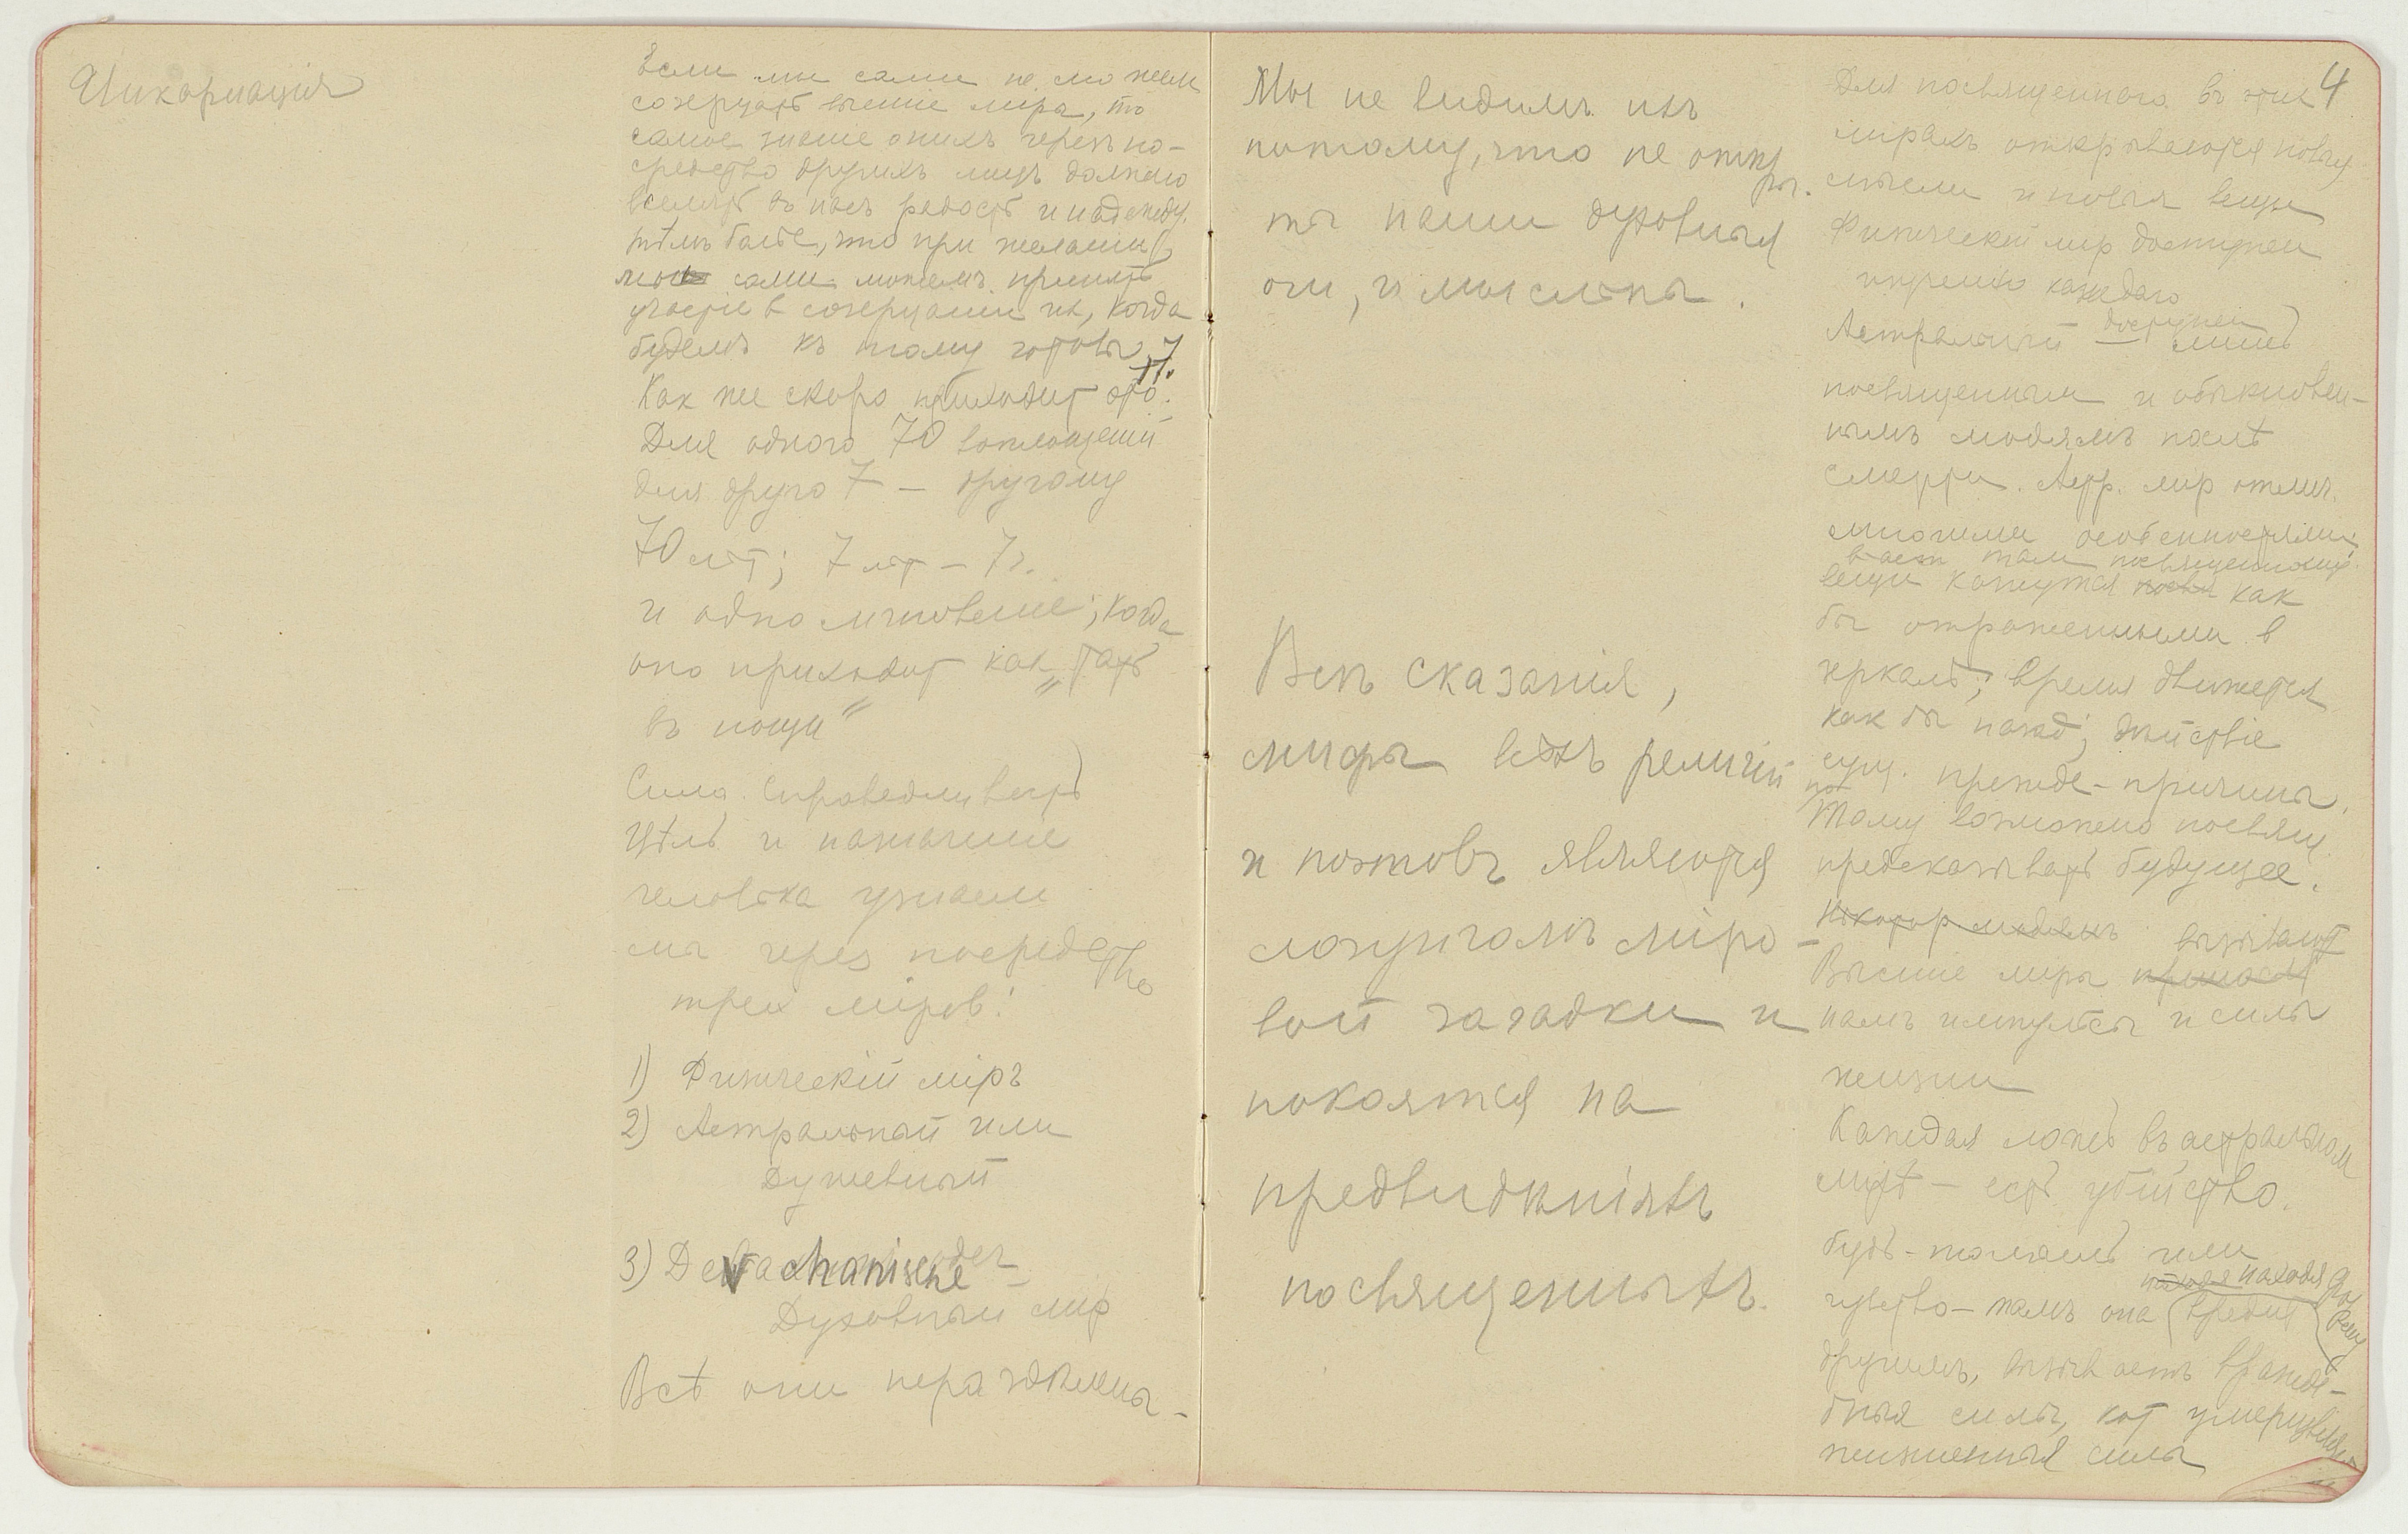 Инкарнація
Если мы сами не можем
созерцать высшіе міра, то
самое знаніе о нихъ черезъ по-
средство другихъ лицъ должно
вселять въ насъ радость и надежду,
тѣмъ болѣе, что при желаніи
мы сами можемъ принять
участіе в созерцаніи их, когда
будемъ къ тому готовы.
Как же скоро приходит это?
Для одного 70 воплощеній
для друго 7 — другому
70 лѣт; 7 лѣт — 7
и одно мгновеніе; когда
оно приходит как „тать
въ нощи"
Сила. Справедливость
Цѣль и назначеніе
человѣка узнаем
мы через посредство
трех міров:
1) Физическій міръ
2) Астральный или
Душевный
3) Devachanische oder
Духовный мір
Всѣ они нераздѣльны -
4
Мы не видимъ ихъ
потому, что не откры-
ты наши духовныя
очи, и мы слѣпы.
Всѣ сказанія,
мифы всѣхъ религій
и поэтовъ являются
лозунгомъ міро-
вой загадки и
покоятся на
предвидѣніяхъ
посвященныхъ.
Для посвященного въ этих
мірахъ открываются новыя
мысли и новыя вещи
Физическій мір доступен
каждаго
Астральный доступен
лишь
посвященным и обыкновен-
нымъ людямъ послѣ
смерти. Астр. мір отлич.
многими особенностями:
там посвященному
вещи кажутся как
бы отраженными в
зеркалѣ; время движется
как бы назад; дѣйствіе
сущ. прежде - причины.
по
тому возможно посвящ.
предсказывать будущее.
Нѣкотор людямъ вызывают
Высшіе міры
намъ импульсы и силы
жизни
Каждая ложь въ астральном
мірѣ — есть убійство.
будь-то мысль или
чувство — тамъ она вредя
другимъ, вызываетъ враждеб-
ныя силы, кот умерщвляют
жизненныя силы